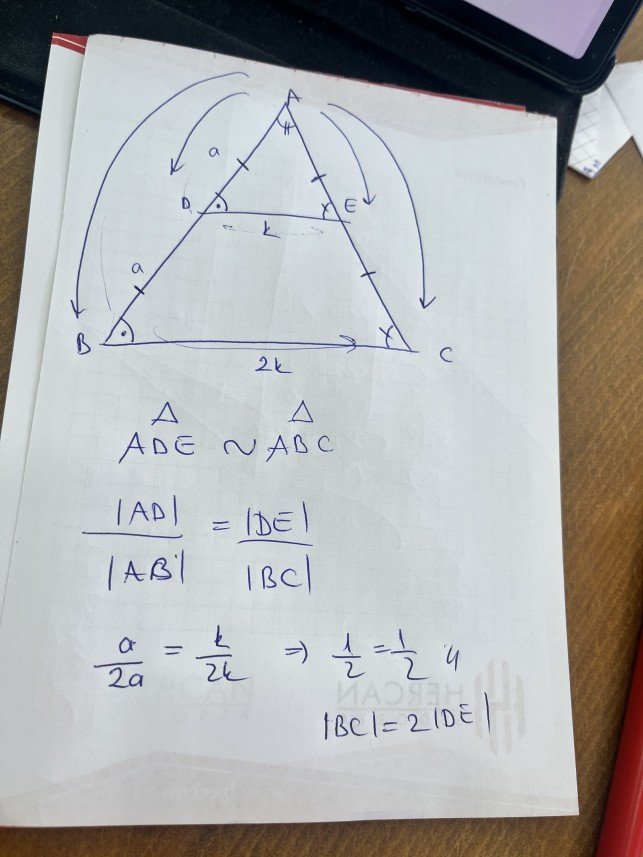 A
a
D
E
k
a
B
C
2k
Δ Δ
ADE ~ ABC
|AD| / |AB| = |DE| / |BC|
a/2a = k/2k ⇒ 1/2 = 1/2 //
|BC| = 2|DE|
HERCAN